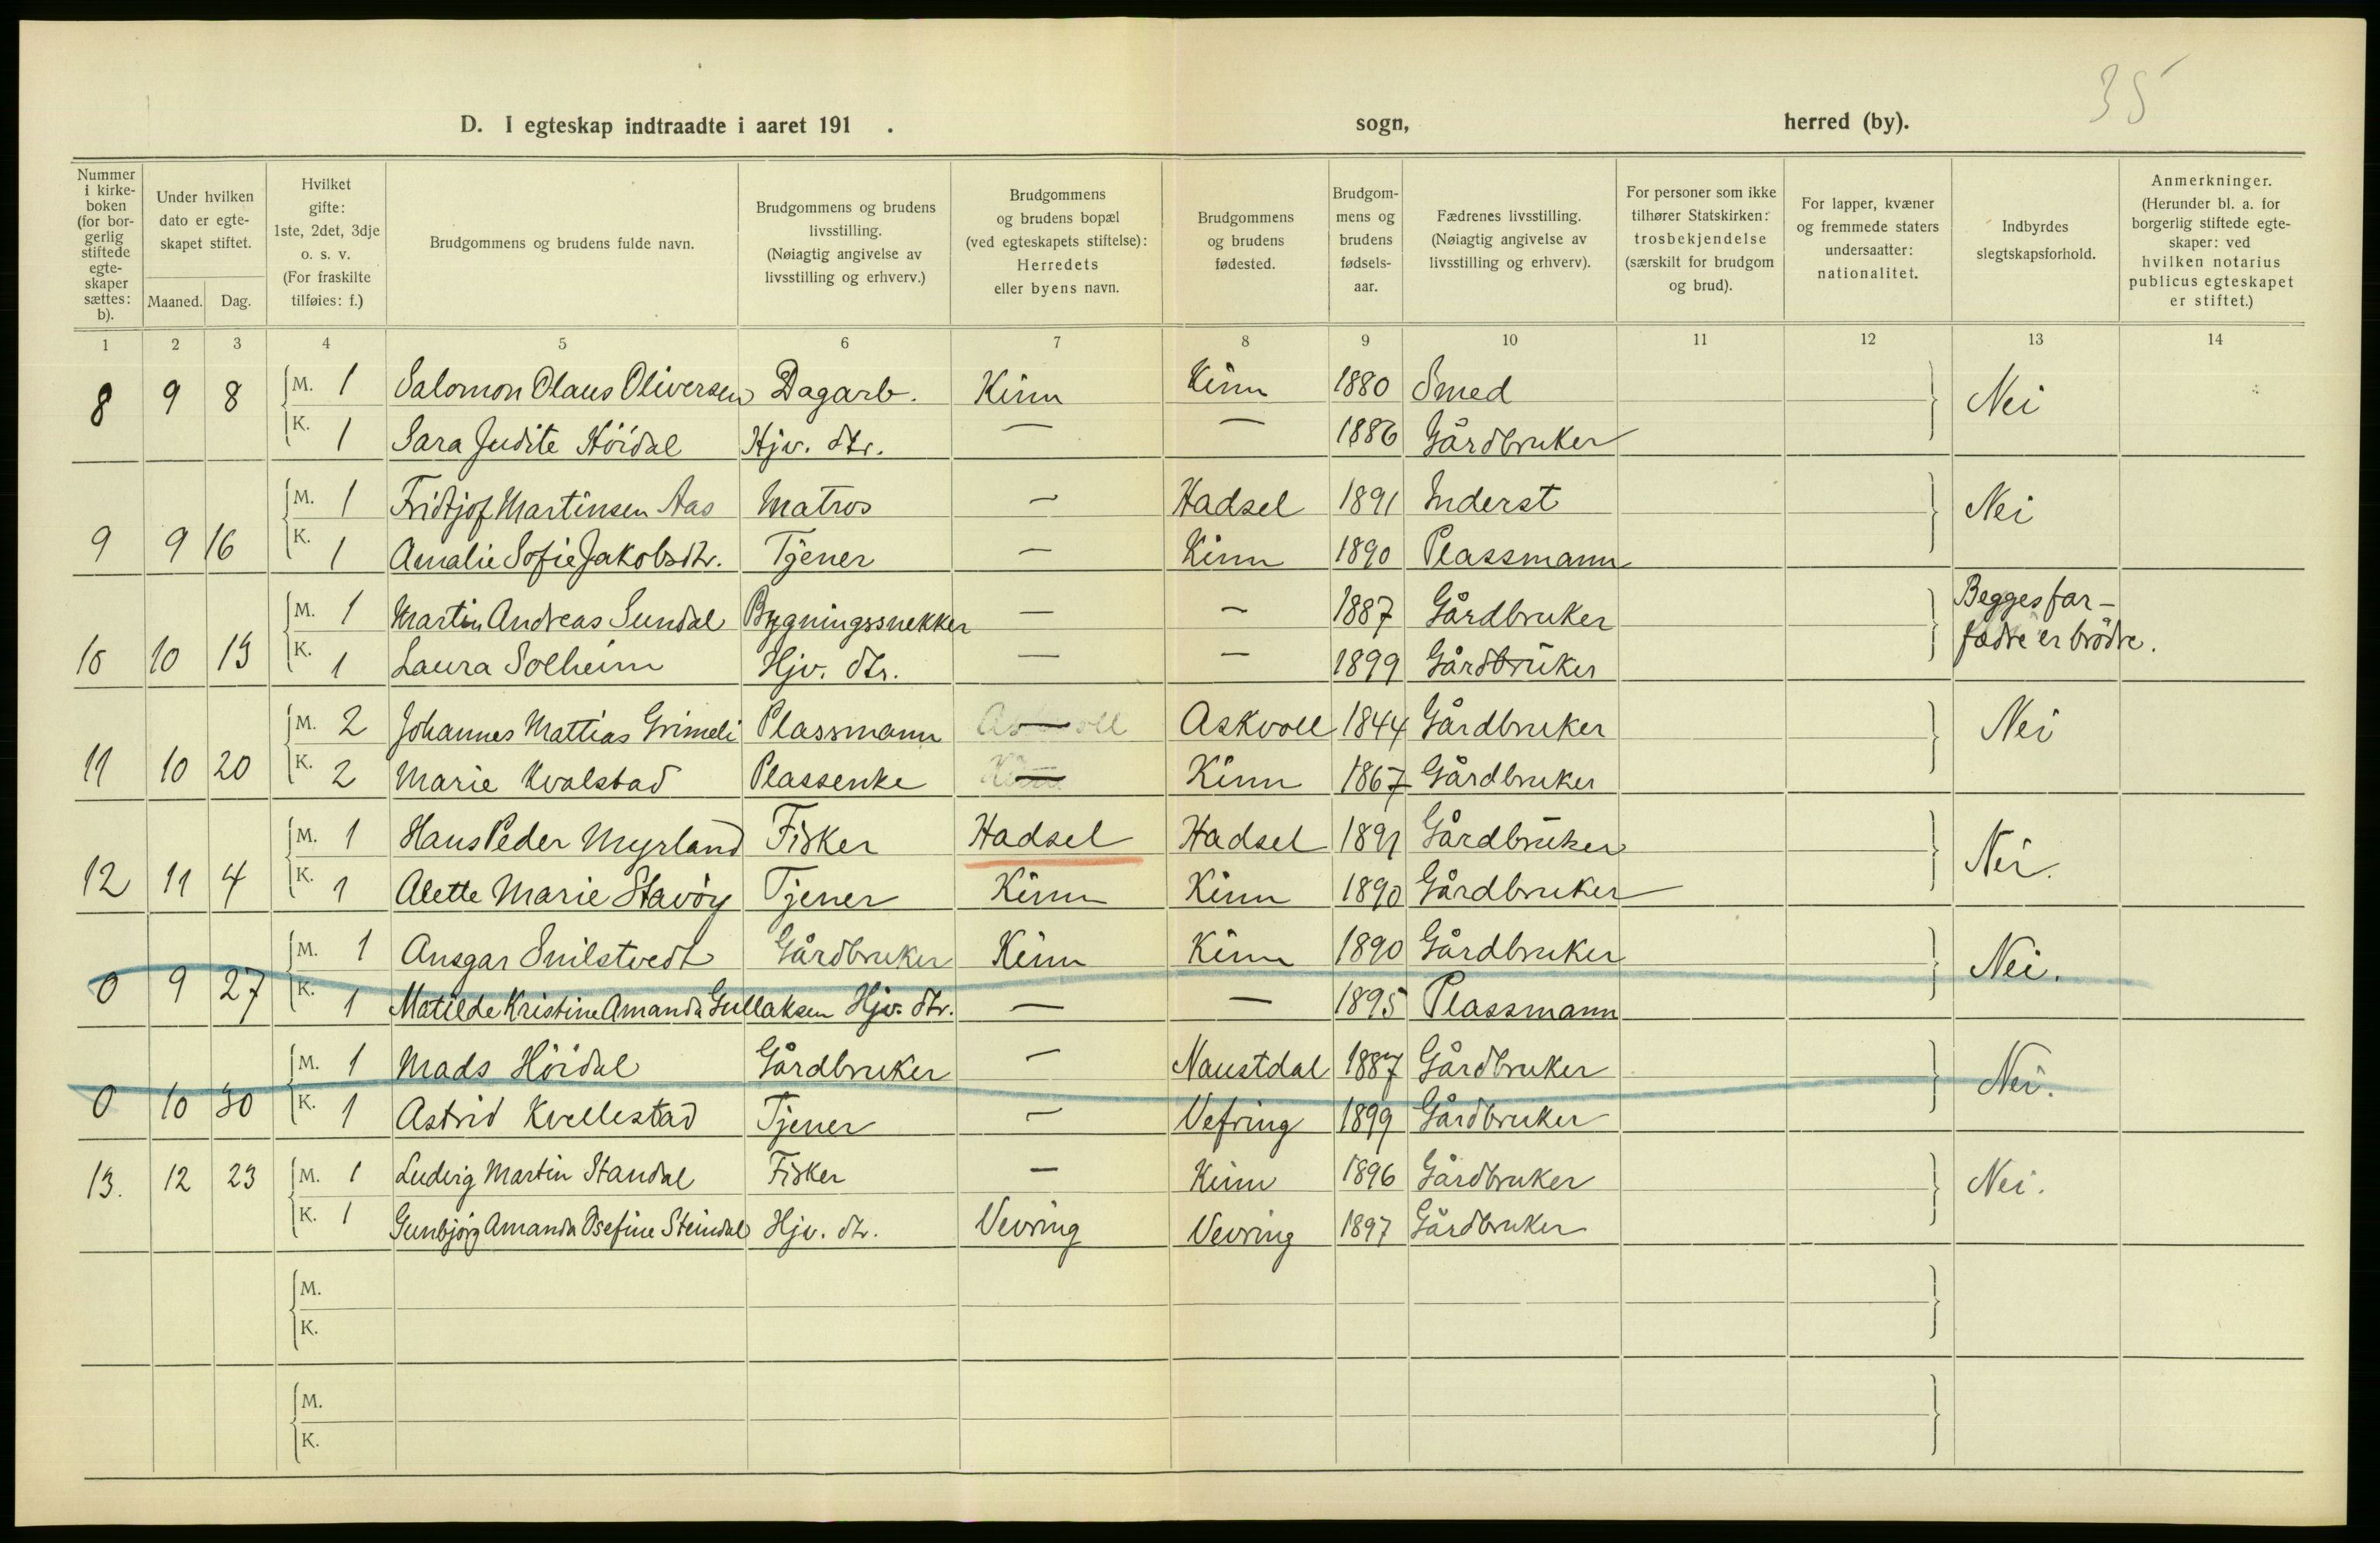 35
D. I egteskap indtraadte i aaret 191 . sogn, herred (by).
Nummer i kirkeboken (for borgerlig stiftede egteskaper sættes: b).
Under hvilken dato er egteskapet stiftet.
Maaned. Dag.
Hvilket gifte: 1ste, 2det, 3dje o. s. v. (For fraskilte tilføies: f.)
Brudgommens og brudens fulde navn.
Brudgommens og brudens livsstilling. (Nøiagtig angivelse av livsstilling og erhverv.)
Brudgommens og brudens bopæl (ved egteskapets stiftelse): Herredets eller byens navn.
Brudgommens og brudens fødested.
Brudgommens og brudens fødselsaar.
Fædrenes livsstilling. (Nøiagtig angivelse av livsstilling og erhverv).
For personer som ikke tilhører Statskirken: trosbekjendelse (særskilt for brudgom og brud).
For lapper, kvæner og fremmede staters undersaatter: nationalitet.
Indbyrdes slegtskapsforhold.
Anmerkninger. (Herunder bl. a. for borgerlig stiftede egteskaper: ved hvilken notarius publicus egteskapet er stiftet.)
1 2 3 4 5 6 7 8 9 10 11 12 13 14
8 9 8 M. 1 Salomon Olaus Oliversen Dagarb. Kinn Kinn 1880 Smed Nei
K. 1 Sara Judite Höidal Hjv. dtr. — — 1886 Gårdbruker
9 9 16 M. 1 Fridtjof Martinsen Aas Matros — Hadsel 1891 Inderst Nei
K. 1 Amalie Sofie Jakobsdtr. Tjener — Kinn 1890 Plassmann
10 10 13 M. 1 Martin Andreas Sundal Bygningssnekker — — 1887 Gårdbruker Begges far-
K. 1 Laura Solheim Hjv. dtr. — — 1899 Gårdbruker fædre er brödre.
11 10 20 M. 2 Johannes Mattias Grimeli Plassmann Askvoll — Askvoll 1844 Gårdbruker Nei
K. 2 Marie Kvalstad Plassenke Kinn — Kinn 1867 Gårdbruker
12 11 4 M. 1 Hans Peder Myrland Fisker Hadsel Hadsel 1891 Gårdbruker Nei.
K. 1 Alette Marie Stavöy Tjener Kinn Kinn 1890 Gårdbruker
0 9 27 M. 1 Ansgar Smilstvedt Gårdbruker Kinn Kinn 1890 Gårdbruker Nei.
K. 1 Matilde Kristine Amanda Gullaksen Hjv. dtr. — — 1895 Plassmann
0 10 30 M. 1 Mads Höidal Gårdbruker — Naustdal 1887 Gårdbruker Nei.
K. 1 Astrid Kvellestad Tjener — Vefring 1899 Gårdbruker
13. 12 23 M. 1 Ludvig Martin Standal Fisker — Kinn 1896 Gårdbruker Nei.
K. 1 Gunbjörg Amanda Osefine Steindal Hjv. dtr. Vevring Vevring 1897 Gårdbruker
M.
K.
M.
K.